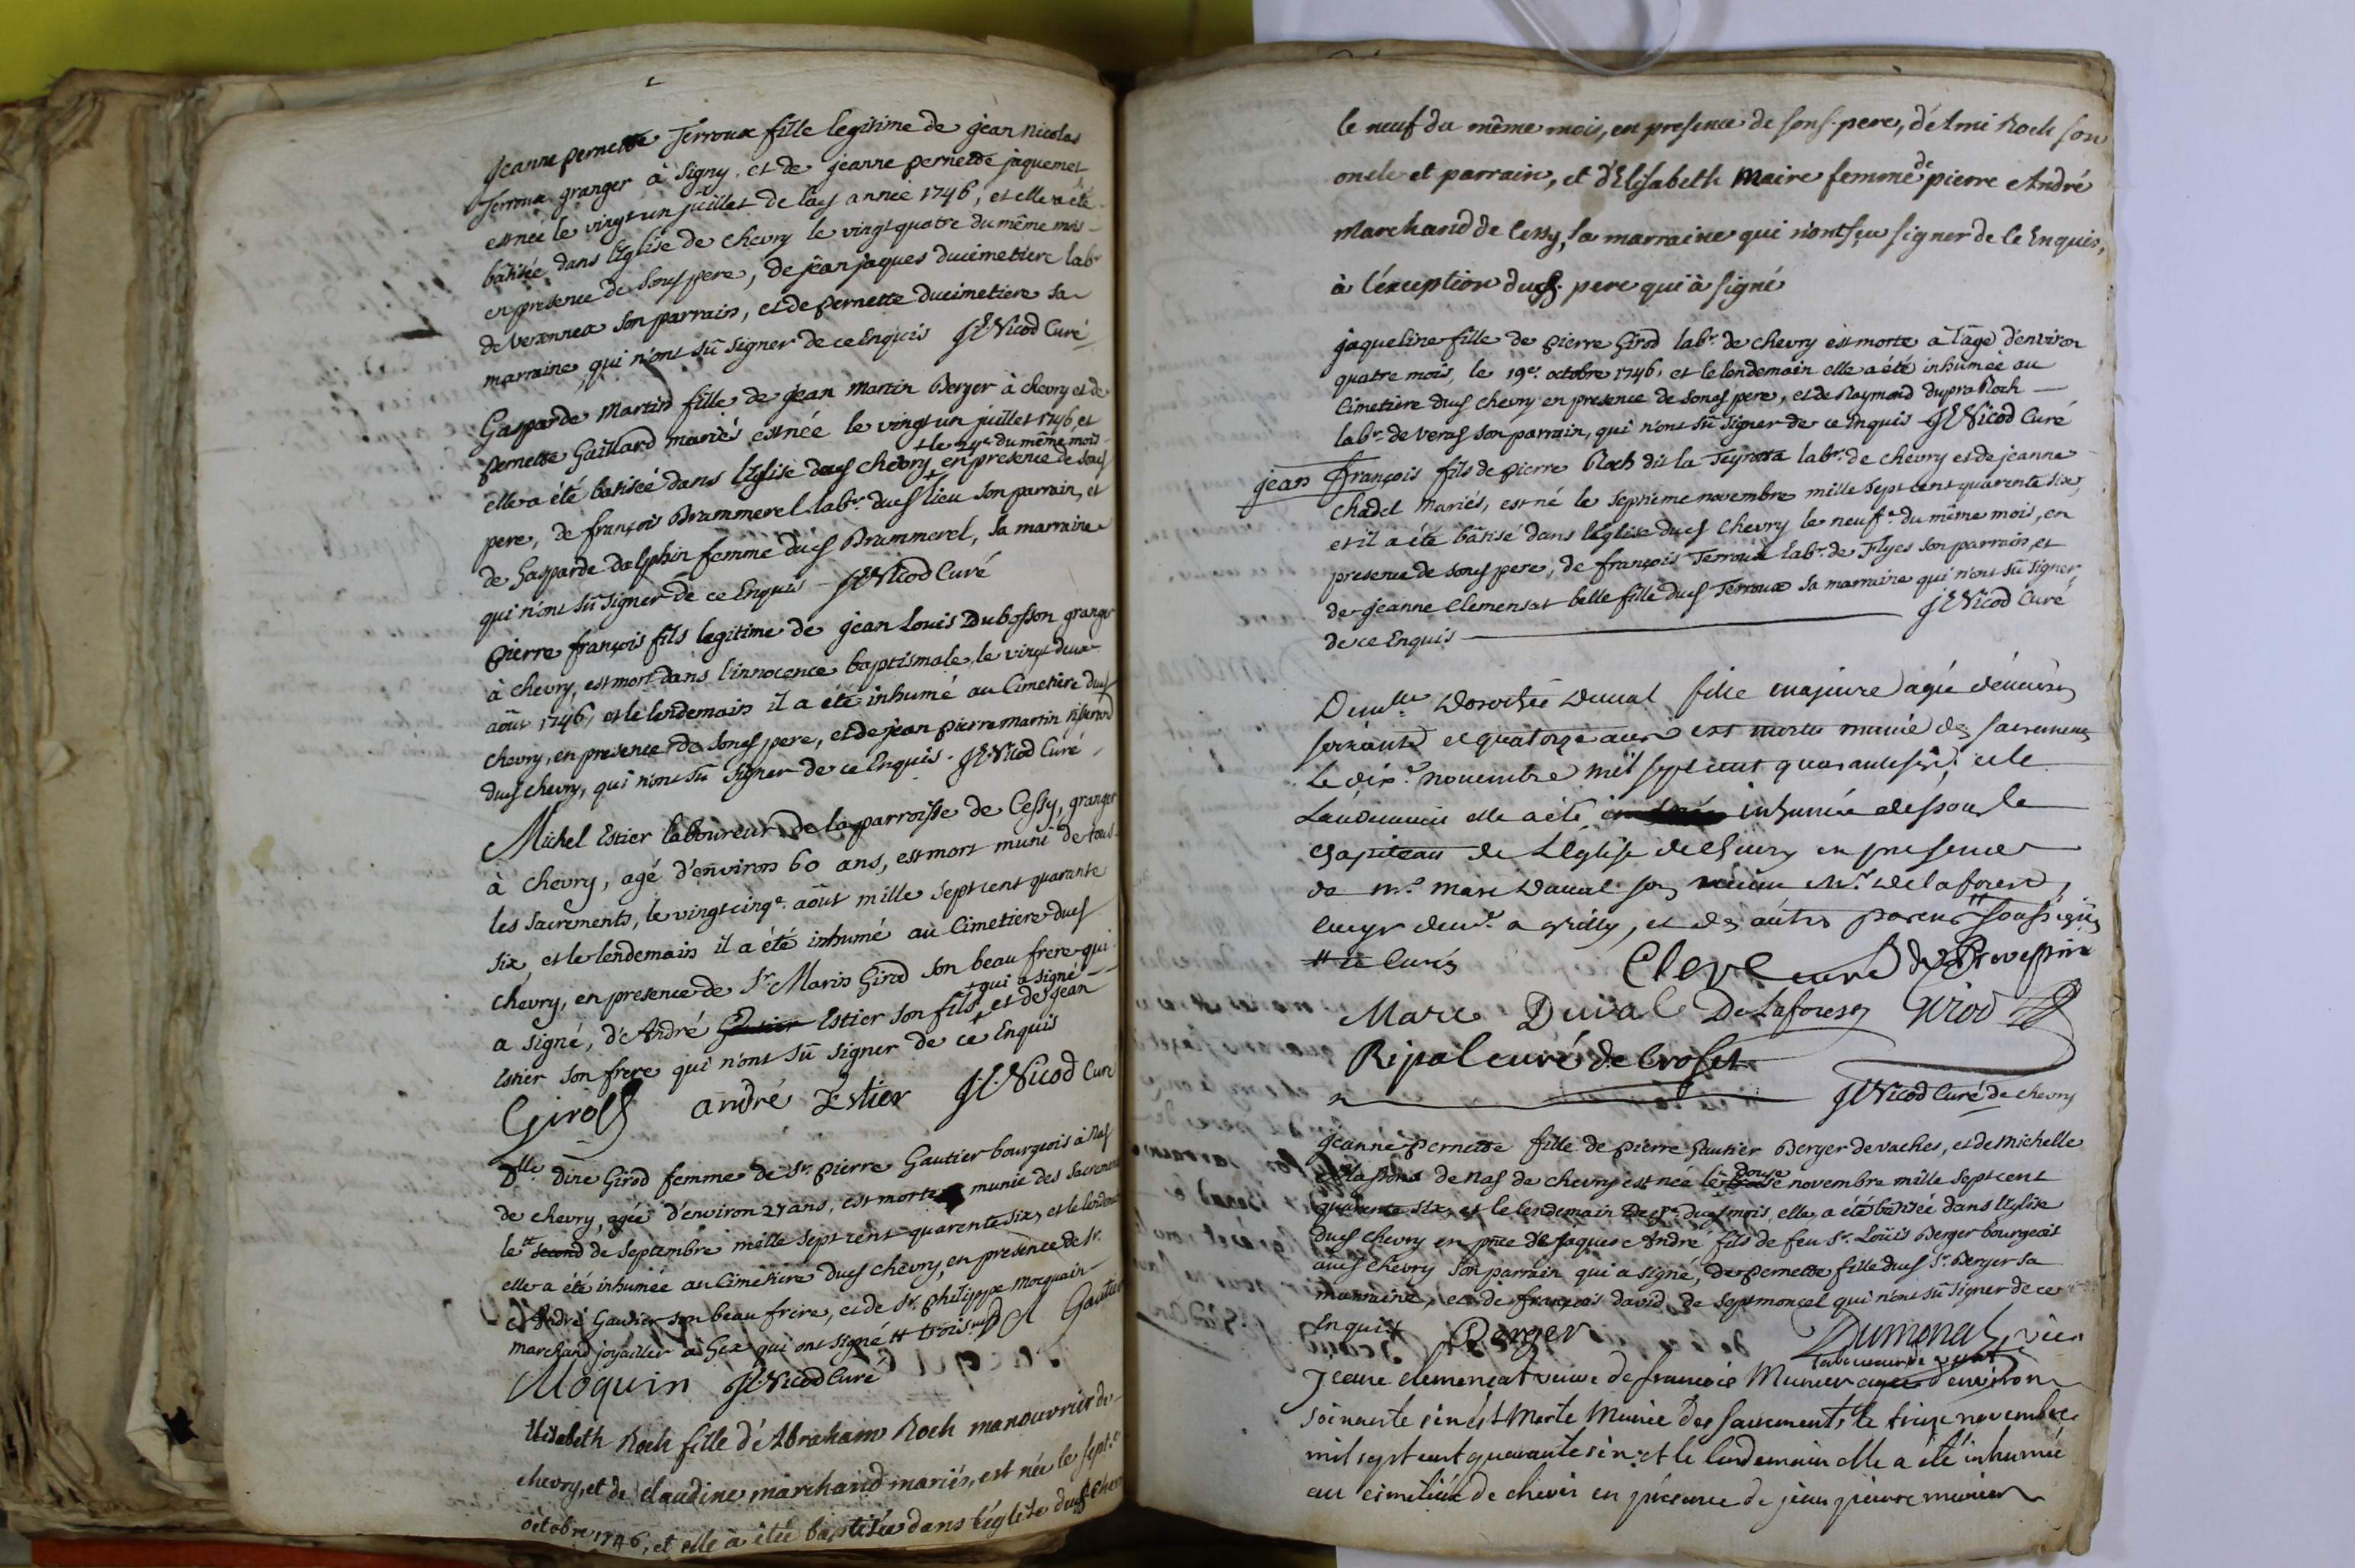 jeanne pernette Terroux fille legitime de jean nicolas
Terroux granger à Signy, et de jeanne pernette jaquemet
est née le vingt un juillet de lad. année 1746, et elle a été
bâtisée dans l'Eglise de chevry le vingt quatre du même mois
en presence de sond. pere, de jean jaques ducimetiere labr.
de veronnex son parrain, et de pernette ducimetiere sa
marraine qui n'ont sû signer de ce Enquis J.E. Nicod Curé
Gasparde Martin fille de jean Martin Berger à chevry et de
pernette Gaillard mariés est née le vingt un juillet 1746, et
+ le 24e. du même mois
elle a été batisée dans l'Eglise dud. chevry + en presence de sond.
pere, de françois Brammerel labr. dud. lieu son parrain, et
de Gasparde dalphin femme dud. Brammerel, sa marraine
qui n'ont sû signer de ce Enquis J.E. Nicod Curé
pierre françois fils legitime de jean Louis Dubosson granger
à chevry, est mort dans l'innocence baptismale, le vingt deux
août 1746, et le lendemain il a été inhumé au Cimetiere dud.
chevry, en presence de sond. pere, et de jean pierre martin
dud. chevry, qui n'ont sû signer de ce Enquis. J.E. Nicod Curé
Michel Estier laboureur de la parroisse de Cessy, granger
à chevry, agé d'environ 60 ans, est mort muni de tous
les sacrements, le vingt cinqe. août mille sept cent quarante
six, et le lendemain il a été inhumé au Cimetiere dud.
chevry, en presence de Sr. Marin Girod son beau frere qui
+ qui a signé
a signé, d'André Estier son fils + et de jean
Estier son frere qui n'ont sû signer de ce Enquis
Girod andré Estier J.E. Nicod Curé
Dlle. dine Girod femme de Sr. pierre Gautier bourgeois à Nas
de chevry, agée d'environ 27 ans, est morte munie des sacremens
le # second de septembre mille sept cent quarente six, et le lendemain
elle a été inhumée au Cimetiere dud. chevry, en presence de Sr.
André Gautier son beau frere, et de Sr. philippe Mocquain
marchand joyailler à Gex qui ont signé # trois me. Gautier
Moquin J.E. Nicod Curé
Elisabeth Roch fille d'Abraham Roch manouvrier de
chevry, et de claudine marchand mariés, est née le sept.e
octobre 1746, et elle à étée baptisée dans l'église dud. chevry
le neuf du même mois, en presence de son s. pere, d'Ami Roch son
oncle et parrain, et d'Elisabeth Maire femme de pierre André
Marchand de Cessy, sa marraine qui n'ont sçu signer de ce Enquis,
à l'éxception dud. pere qui à signé
jaqueline fille de pierre Girod labr. de chevry est morte à l'âge d'environ
quatre mois, le 19e. octobre 1746, et le lendemain elle a été inhumée au
Cimetiere dud. chevry en presence de sond. pere, et de Raymond dupra Roch
labr. de veras son parrain, qui n'ont sû signer de ce Enquis J.E. Nicod Curé
jean françois fils de pierre Roch dit la Teyrasa labr. de chevry et de jeanne
Chadel mariés, est né le septieme novembre mille sept cent quarente six,
et il a été bâtisé dans l'Eglise dud. chevry le neufe. du même mois, en
presence de sond. pere, de françois Terroux labr. de Flyes son parrain, et
de jeanne Clemensat belle fille dud. Terroux sa marraine qui n'ont sû signer
de ce Enquis J.E. Nicod Curé
Demlle Dorothée Duval fille majeure agée d'environ
soixante et quatorze ans est morte munie des sacremens
le dixe. novembre mil sept cent quarante six, et le
Landemain elle a été inhumée dessous le
chapiteau de L'Eglise de chevry en presence
de mr. marc Duval son neveu Mr. De laforest,
a Grilly, et des autres parents soussignés
# et Curés
Clerc curé de Prevessin
Marc Duval De Laforest Girod
Ripal curé de Croset
J.E. Nicod Curé de chevry
jeanne pernette fille de pierre Gautier Berger de vaches, et de Michelle
de Nas de chevry est née le douse novembre mille sept cent
quarente six, et le lendemain dud. mois, elle a été batisée dans l'Eglise
dud. chevry en pnce de jaques André fils de feu Sr. Loüis Berger bourgeois
aud. chevry son parrain qui a signé, de pernette fille dud. Sr. Berger sa
marraine, et de françois david de septmoncel qui n'ont sû signer de ce
Enquis Berger Dumonal vic.
laboureur de
Jeanne clemencat veuve de francois Munier agée d'environ
soixante six est Morte Munie des sacrements le treize novembre
mil sept cent quarante six et le lendemain elle a été inhumée
au cimetiére de chevri en présence de jean pierre munier